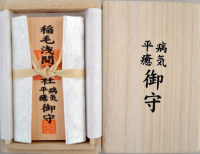 稲毛浅間
社
病気
平癒
御守
病気
平癒
御守